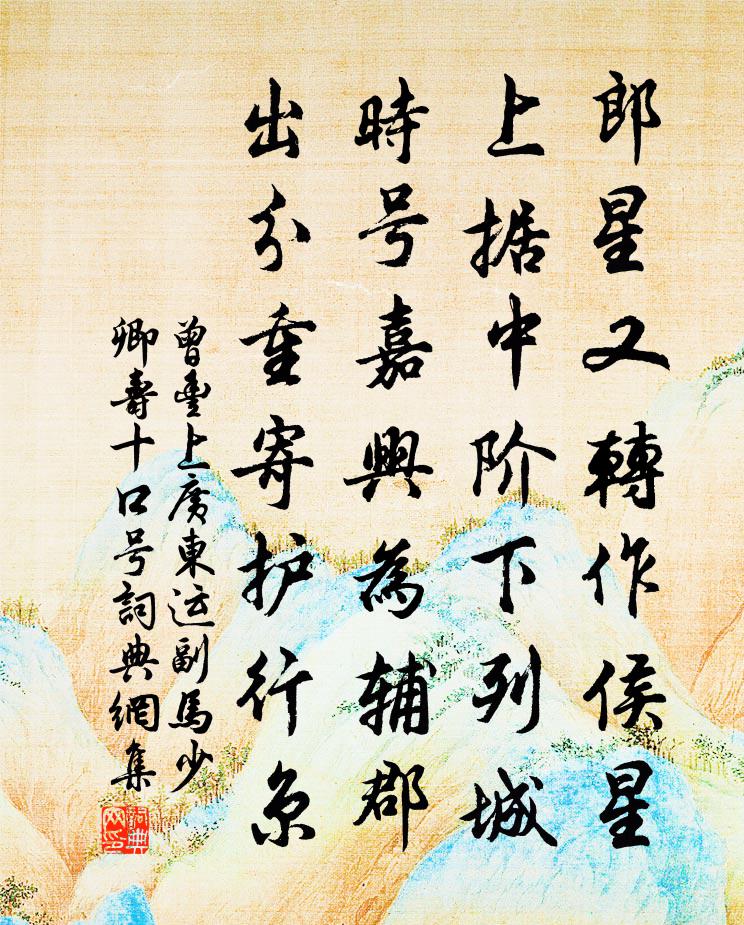 郎星又轉作侯星
上据中阶下列城
時号嘉興為辅郡
出分重寄护行京
曾豊上廣東运副馬少
卿壽十口号詞典網集
詞典
网印